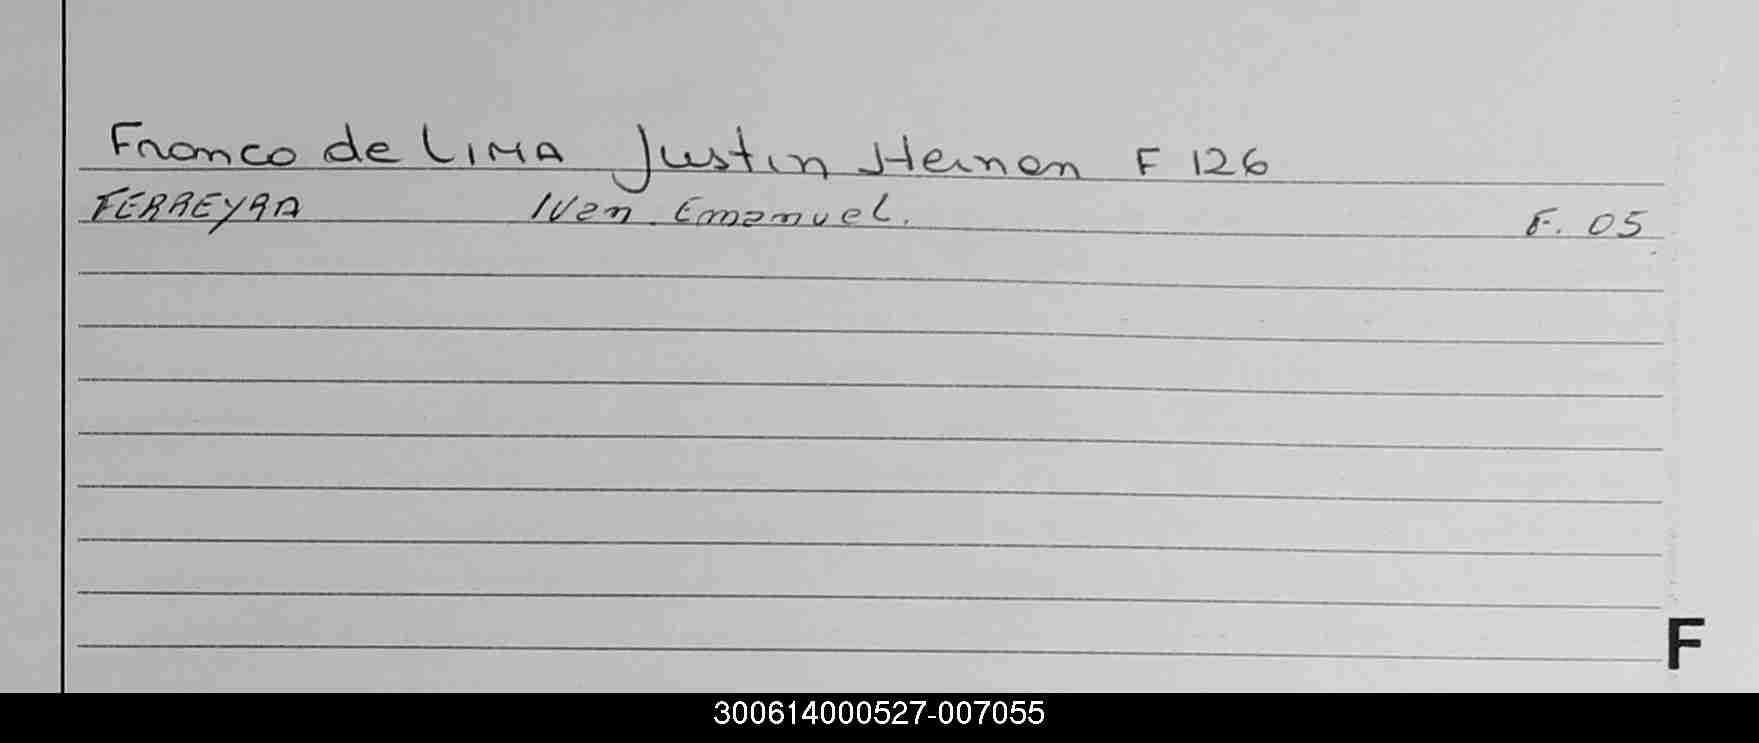 Franco de LIMA Justin Hernan F 126
FERREYRA Ivan Emanuel. F. 05
F
300614000527-007055